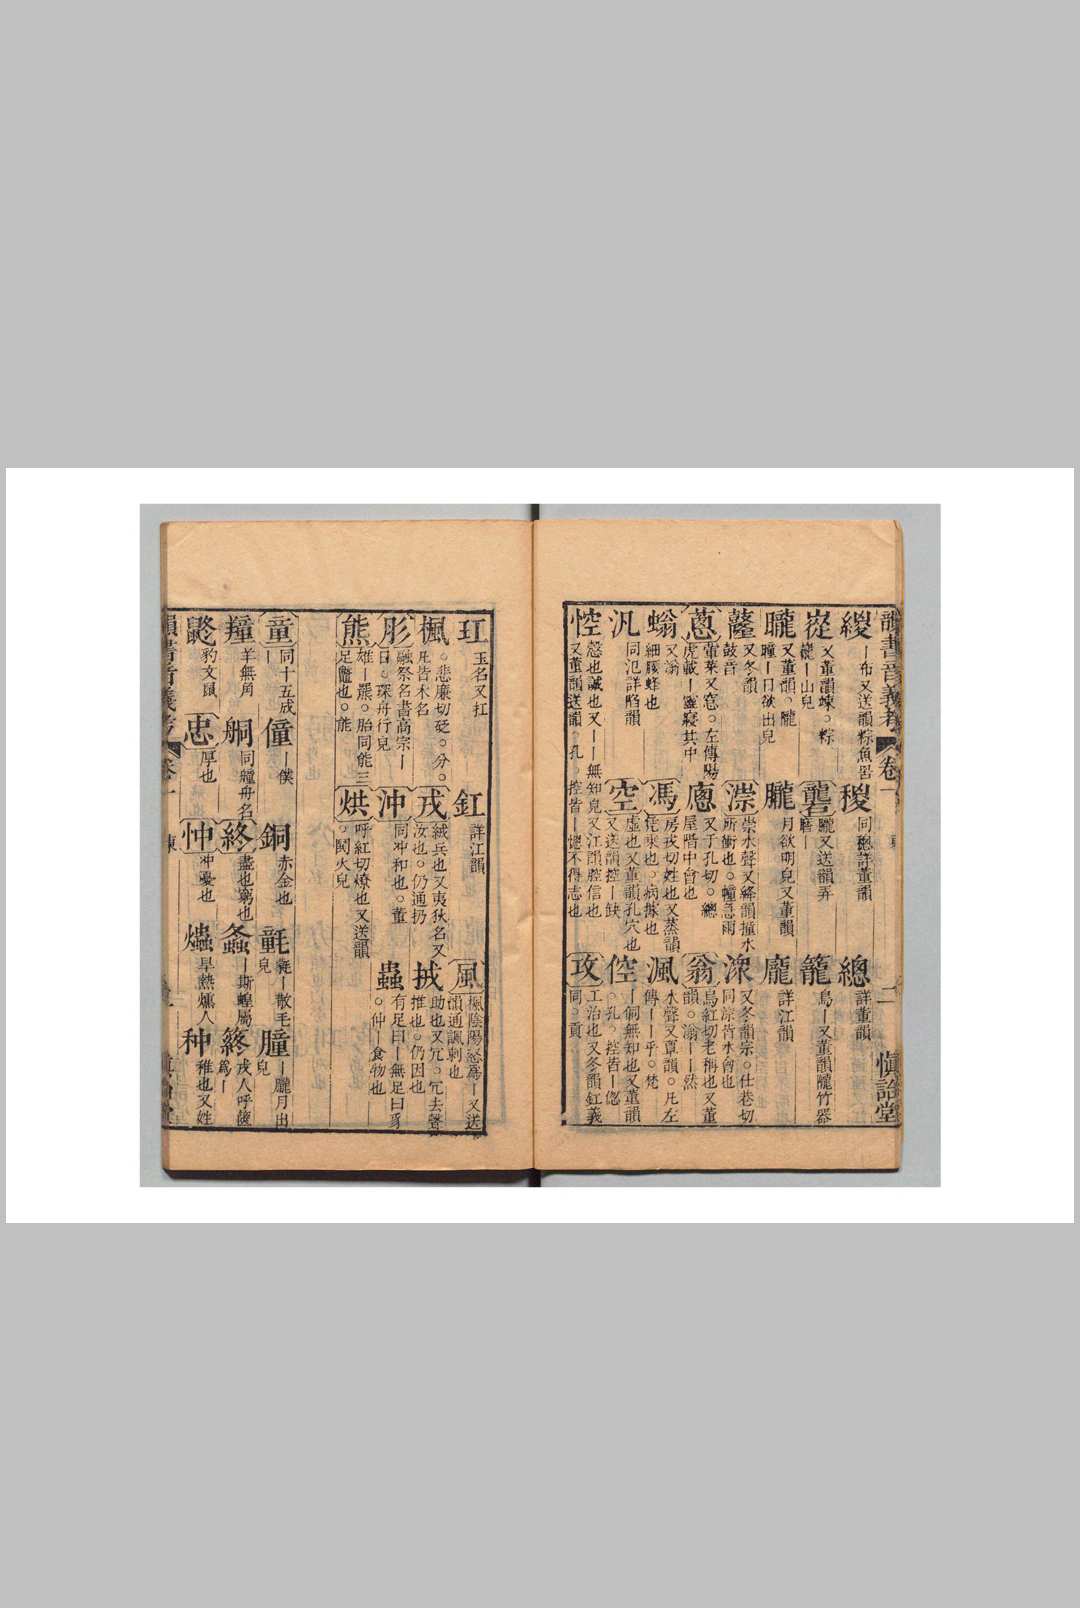 韻書音義考 卷一 東 二 慎詒堂
緵 ｜布又送韻粽魚罟
稯 同緫詳董韻
總 詳董韻
嵸 又董韻竦。粽 巃｜山皃
礱 朧又送韻弄 磨｜
籠 鳥｜又董韻朧竹器
曨 又董韻。朧 曈｜日欲出皃
朧 月欲明皃又董韻
龐 詳江韻
鼕 又冬韻 鼓音
漴 崇水聲又絳韻撞水所衝也。幢急雨
潨 又冬韻宗。仕巷切同漴水會也
蔥 葷菜又窓。左傳陽虎載｜靈寢其中
悤 又于孔切。總 屋階中會也
翁 烏紅切老稱也又董韻。滃｜｜然
螉 又滃 細腰蜂也
馮 房戎切姓也又蒸韻
渢 水聲又覃韻。凡左傳｜｜乎。梵
汎 同氾詳陷韻
空 虛也又董韻孔穴也又送韻控｜缺
倥 ｜侗無知也又董韻。孔。控皆｜偬
悾 愨也誠也又｜｜無知皃又江韻腔信也又董韻送韻。孔。控皆｜憁不得志也
攻 工治也又冬韻釭義同。貢
玒 玉名又扛
釭 詳江韻
風 楓陰陽怒爲｜又送韻通諷刺也
楓 。悲廉切砭。分。凡皆木名
戎 絨兵也又夷狄名又汝也。仍通扔
拔 助也又宂。宂去聲推也。仍因也
肜 融祭名書高宗｜日。琛舟行皃
沖 同冲和也。董
蟲 有足曰｜無足曰豸。仲｜食物也
熊 雄｜羆。胎同能三足鼈也。能
烘 呼紅切燎也又送韻。鬨火皃
童 同十五成｜
僮 ｜僕
銅 赤金也
氃 毿｜散毛皃
朣 ｜朧月出皃
羵 羊無角
艟 同艟舟名
終 盡也窮也
螽 ｜斯蝗屬
終 戎人呼篠爲｜
鼨 豹文鼠
忠 厚也
忡 冲憂也
爞 旱熱燻人
种 稚也又姓
韻書音義考 卷一 東